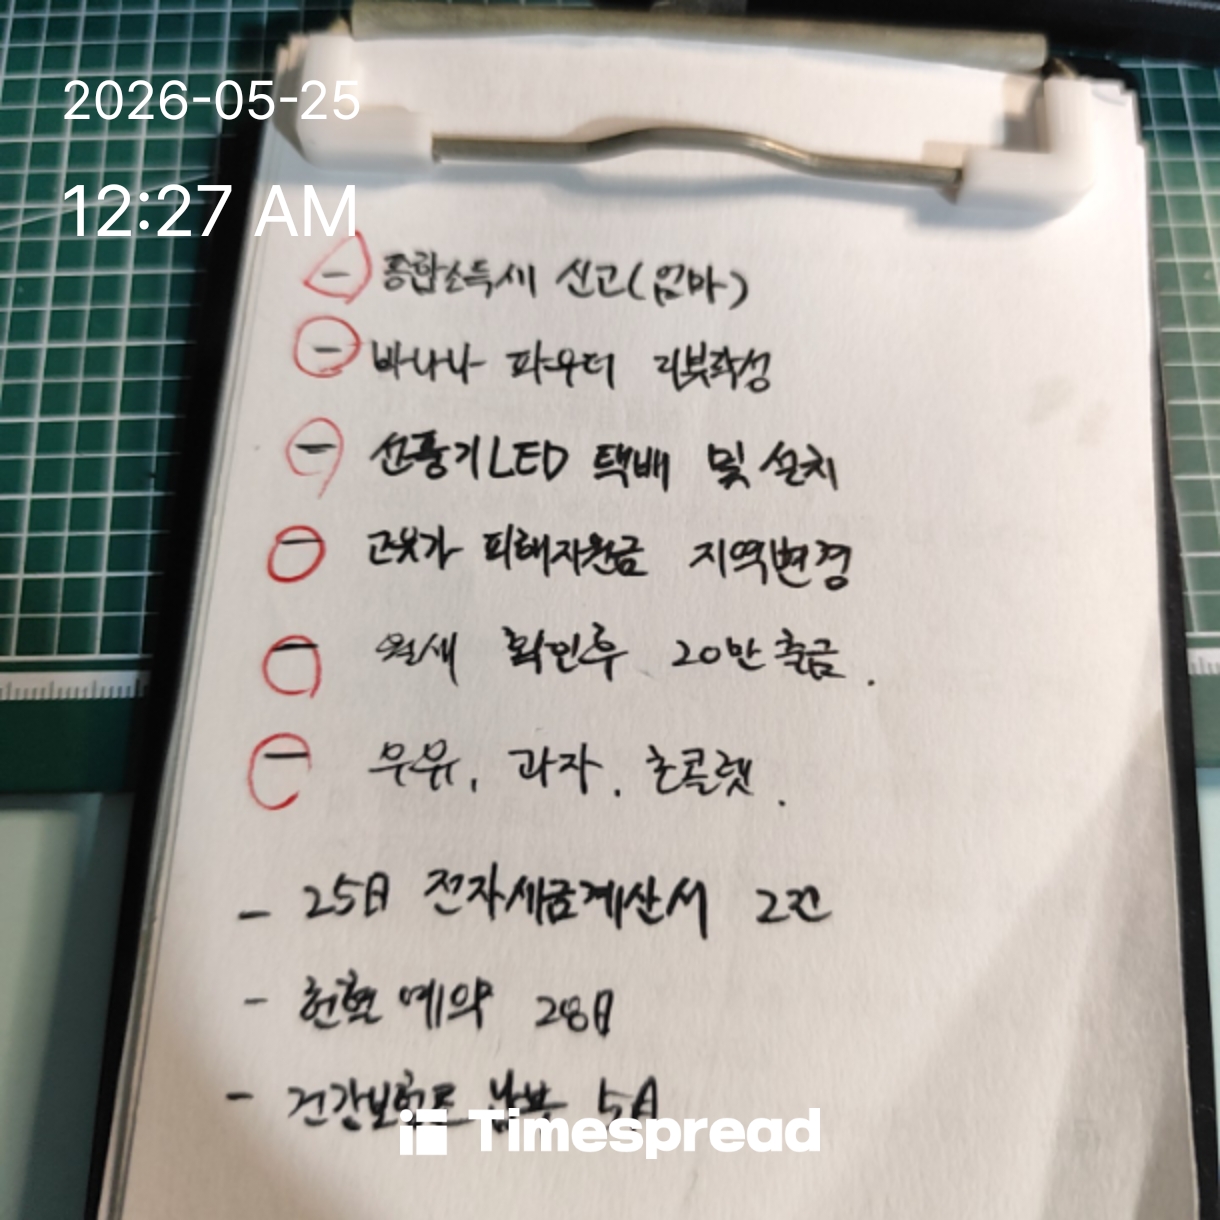 2026-05-25
12:27 AM
- 종합소득세 신고(엄마)
- 바나나 파우더 리뷰작성
- 선풍기LED 택배 및 설치
- 고유가 피해지원금 지역변경
- 월세 확인후 20만 출금.
- 우유, 과자. 초콜렛.
- 25日 전자세금계산서 2건
- 헌혈 예약 28日
- 건강보험료 납부 5日
Timespread